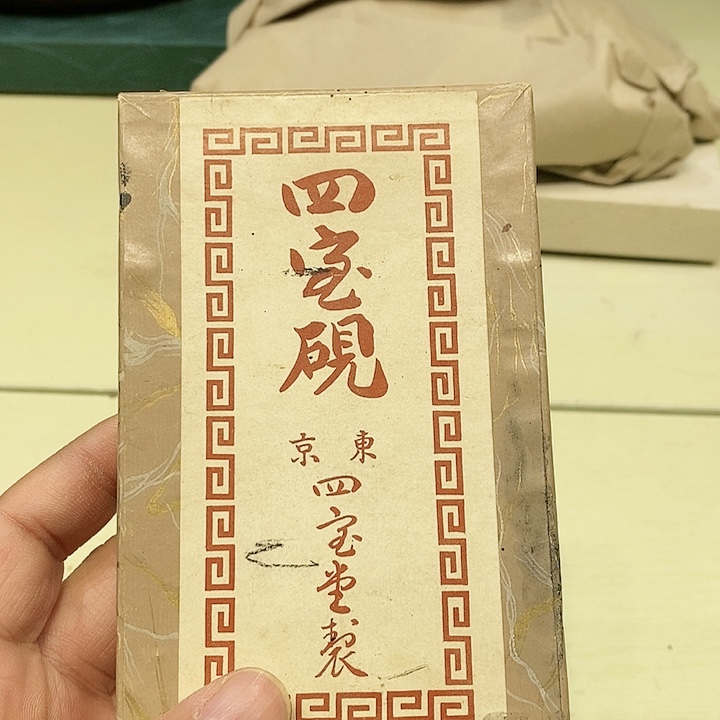 四宝硯
東京
四宝堂製